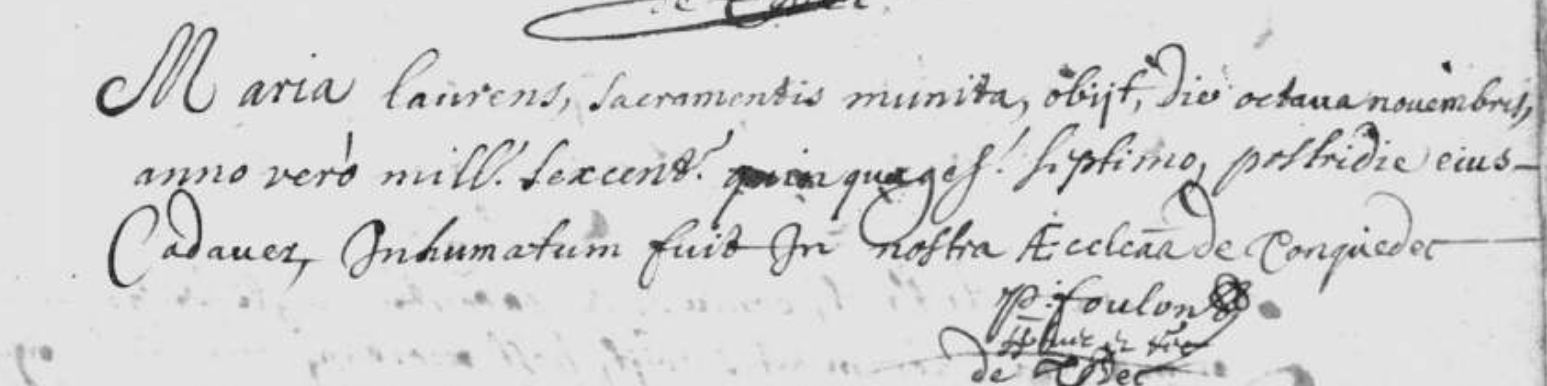 Maria laurens, sacramentis munita, obijt, die octaua nouembris,
anno verò mill.' sexcent.' quinquages.' septimo, postridie eius
Cadauer, Inhumatum fuit In nostra Æccleãa de Tonquedec
p: foulon
de Tq̃dec